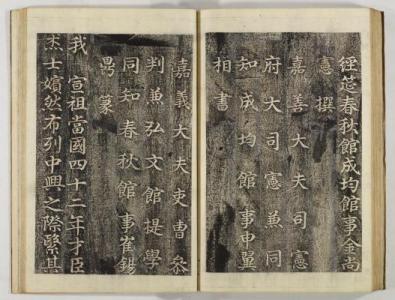 經筵春秋館成均館事金尚
憲撰
嘉善大夫司憲
府大司憲兼同
知成均館事申翼
相書
嘉義大夫吏曹參
判兼弘文館提學
同知春秋館事崔錫
鼎篆
我 宣祖當國四十二年才臣
杰士嬪然布列中興之際繄其